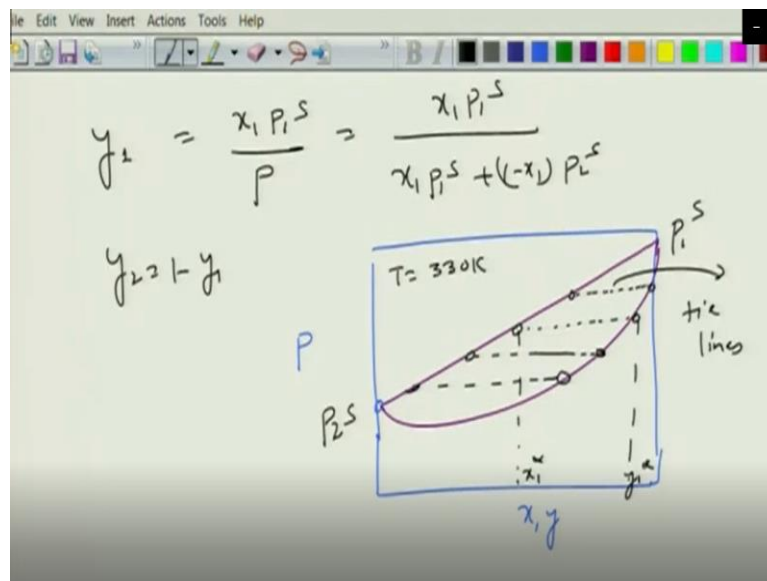 le Edit View Insert Actions Tools Help
B I
y₁ = x₁ P₁ˢ / P = x₁ P₁ˢ / x₁ P₁ˢ + (1-x₁) P₂ˢ
y₂ = 1- y₁
P₁ˢ
T = 330K
tie
lines
P
P₂ˢ
x₁*
y₁*
x, y